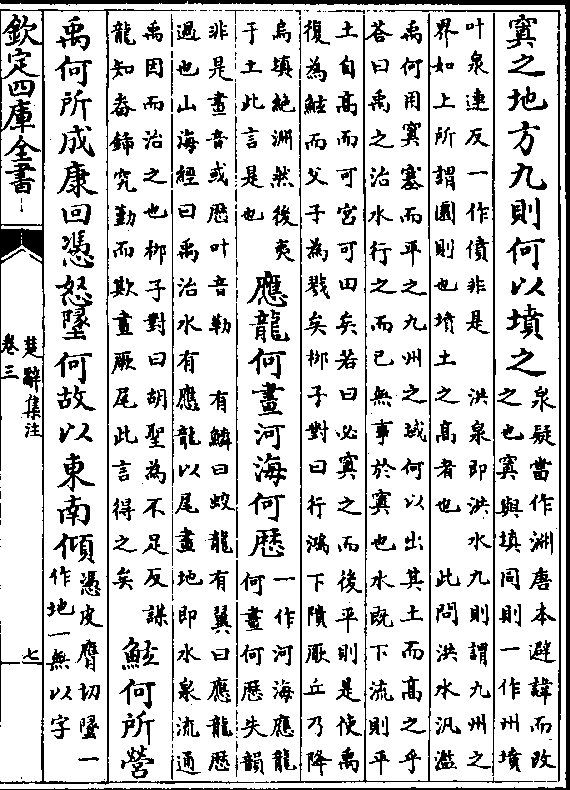 寘之地方九則何以墳之
泉疑當作淵唐本避諱而改
之也寘與填同則一作州墳
叶泉連反一作僨非是 洪泉即洪水九則謂九州之
界如上所謂圜則也墳土之髙者也 此問洪水汎濫
禹何用寘塞而平之九州之域何以出其土而髙之乎
荅曰禹之治水行之而已無事於寘也水既下流則平
土自髙而可宮可田矣若曰必寘之而後平則是使禹
復為鮌而父子為戮矣栁子對曰行鴻下隤厥丘乃降
烏填絶淵然後夷
于土此言是也
應龍何畫河海何歴
一作河海應龍
何畫何歴失韻
非是畫音或歴叶音勒 有鱗曰蛟龍有翼曰應龍歴
過也山海經曰禹治水有應龍以尾畫地即水泉流通
禹因而治之也栁子對曰胡聖為不足反謀
龍知畚鍤究勤而欺畫厥尾此言得之矣
鮌何所營
禹何所成康回憑怒墜何故以東南傾
憑皮膺切墜一
作地一無以字
欽定四庫全書
楚辭集注
卷三
七